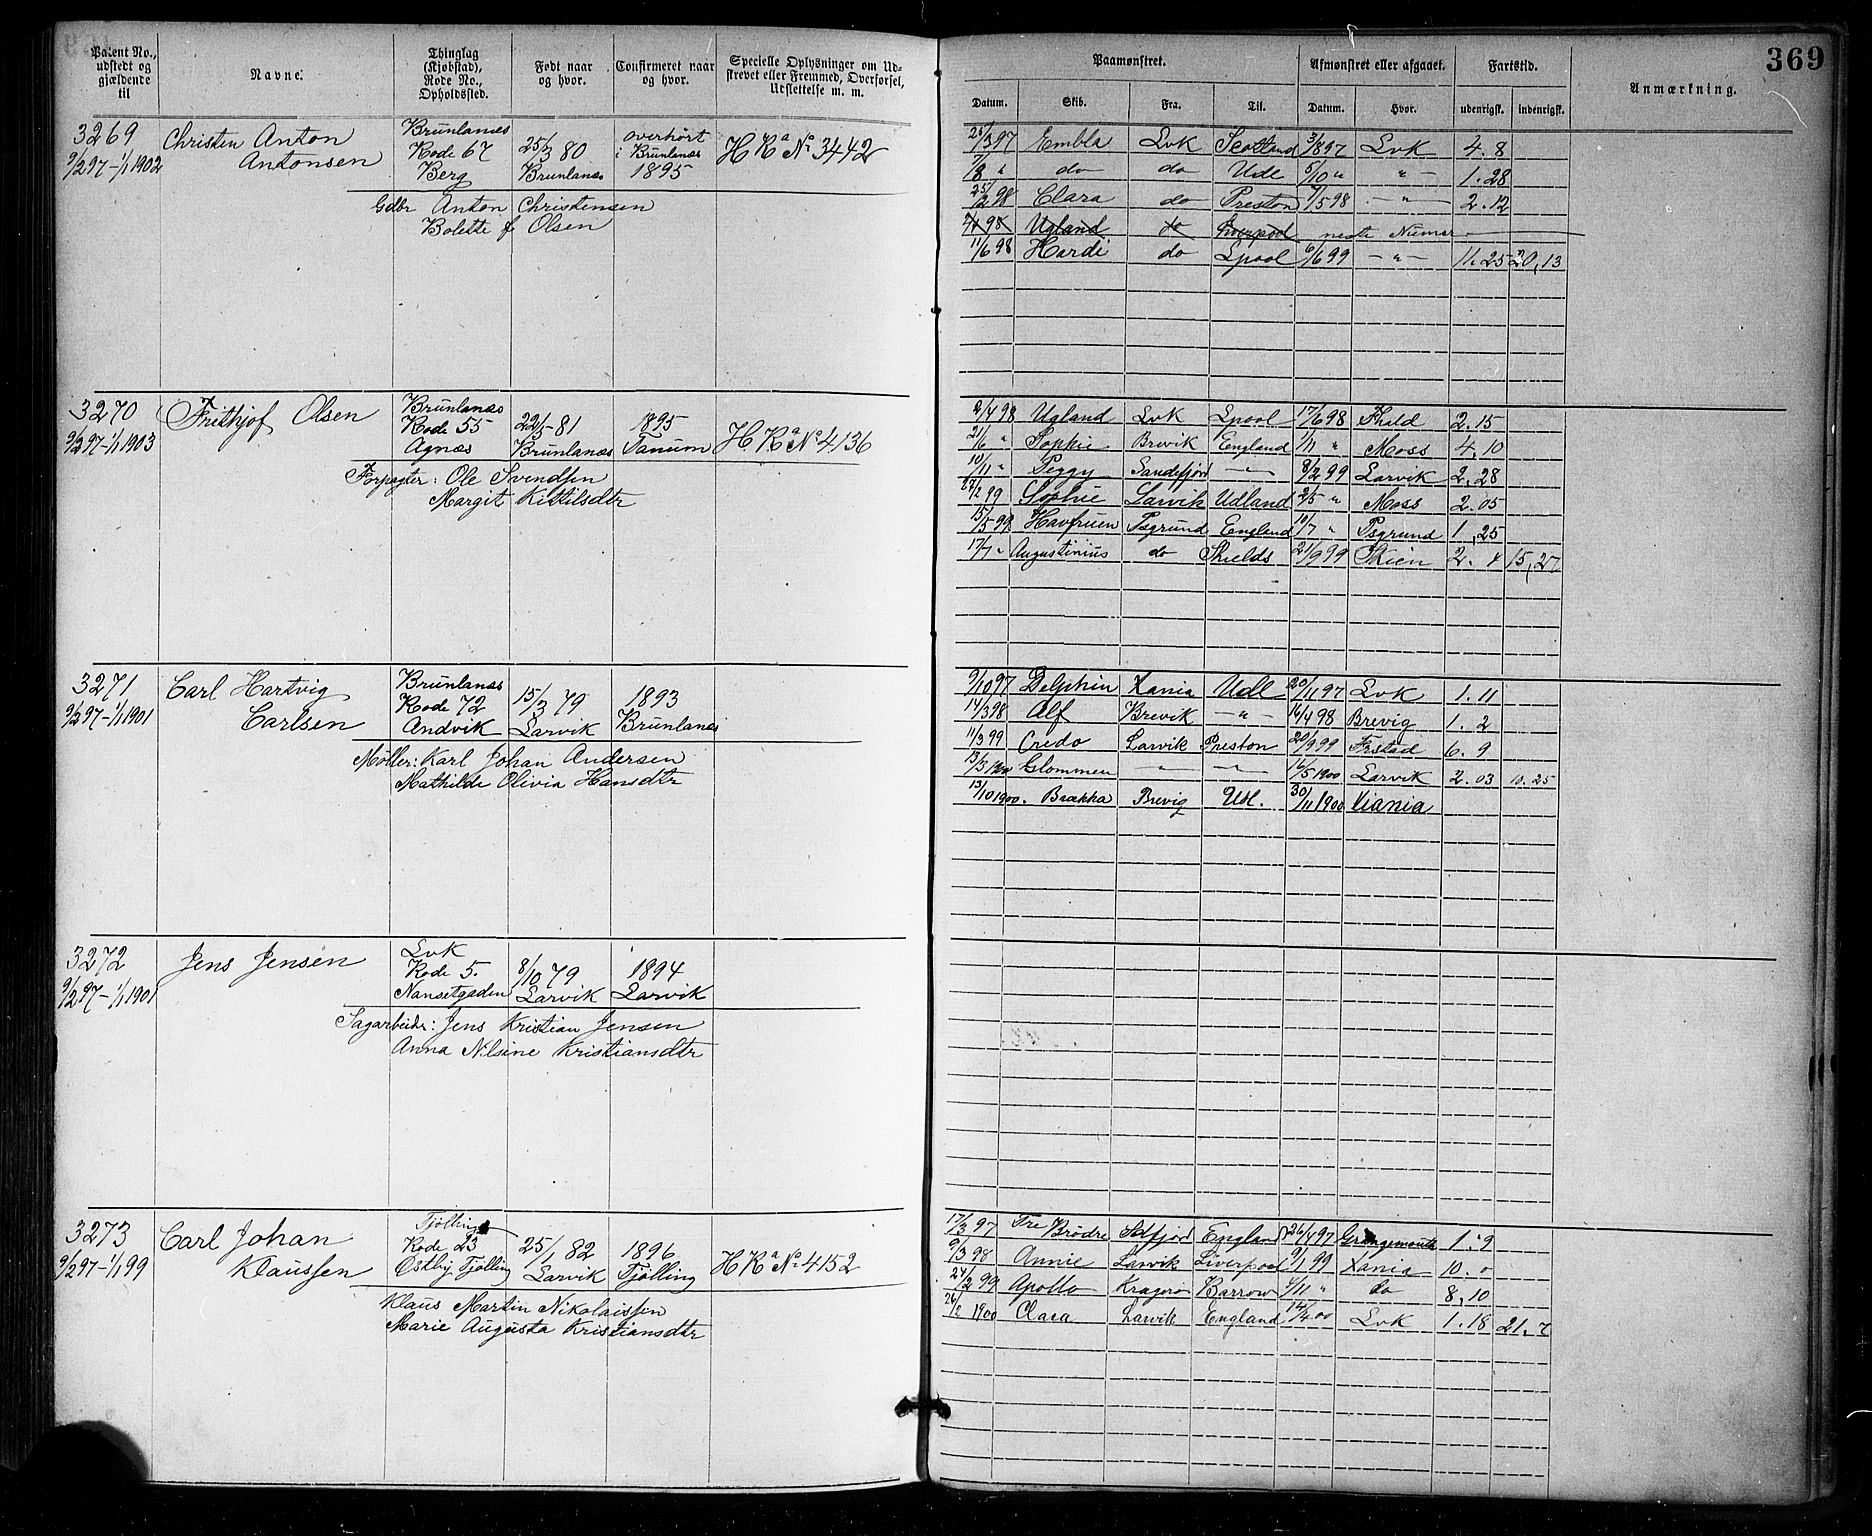 369
Patent No., udstedt og gjældende til
Navne.
Thinglag (Kjøbstad), Rode No., Opholdssted.
Født naar og hvor.
Confirmeret naar og hvor.
Specielle Oplysninger om Udstrevet eller Fremmed, Overførsel, Udslettelse m. m.
Paamønstret.
Afmønstret eller afgaaet.
Fartstid.
Anmærkning.
Datum. Skib. Fra. Til. Datum. Hvor. udenrigsk. indenrigsk.
3269 Christen Anton Brunlanæs 25/3 80 overhørt H Ka No 3442
9/2 97-1/1 1902 Antonsen Rode 67 Brunlanæs i Brunlanæs
Berg 1895
Gdbr Anton Christensen
Bolette f Olsen
25/3 97 Embla Lvk Scotland 3/8 97 Lvk 4.8
7/8 " do do Udl 5/10 " " 1.28
25/2 98 Clara do Preston 7/5 98 " 2.12
2/4 98 Ugland do Liverpool neste Numer
11/6 98 Hardi do Lpool 6/6 99 " 11.25 20,13
3270 Frithjof Olsen Brunlanæs 22/5 81 1895 H. Ka No 4136
9/2 97-1/1 1903 Rode 55 Brunlanæs Tanum
Agnæs
Forpagter: Ole Svendsen
Margit Kittilsdtr
2/4 98 Ugland Lvk Lpool 17/6 98 Fhald 2.15
21/6 " Sophie Brevik England 1/11 " Moss 4.10
10/11 " Peggy Sandefjord " 8/2 99 Larvik 2.28
27/2 99 Sophie Larvik Udland 2/5 " Moss 2.05
15/5 99 Havfruen Psgrund England 10/7 " Psgrund 1,25
17/7 " Augustinius do Shields 21/9 99 Skien 2.4 15,27
3271 Carl Hartvig Brunlanæs 15/3 79 1893
9/2 97-1/1 1901 Carlsen Rode 72 Larvik Brunlanæs
Andvik
Møller: Karl Johan Andersen
Mathilde Olivia Hansdtr
9/10 97 Delphin Xania Udl 20/11 97 Lvk 1.11
14/3 98 Alf Brevik " 16/4 98 Brevig 1.2
11/3 99 Credo Larvik Preston 20/9 99 Frstad 6.9
13/3 1900 Glommen " " 16/5 1900 Larvik 2.03 10.25
13/10 1900. Brækka Brevig Udl. 30/11 1900 Xiania
3272 Jens Jensen Lvk 8/10 79 1894
9/2 97-1/1 1901 Rode 5. Larvik Larvik
Nansetgaden
Sagarbeidr: Jens Kristian Jensen
Anna Nilsine Kristiansdtr
3273 Carl Johan Tjølling 25/1 82 1896 H Ka No 4152
9/2 97-1/1 99 Klaussen Rode 23 Larvik Tjølling
Østby Tjølling
Klaus Martin Nikolaissen
Marie Augusta Kristiansdtr
17/3 97 Tre Brødre Sdfjord England 26/4 97 Grangemouth 1.9
9/3 98 Annie Larvik Liverpool 9/1 99 Xania 10.0
24/2 99 Apollo Kragerø Barrow 4/11 " do 8,10
26/2 1900 Clara Larvik England 14/4 00 Lvk 1.18 21.7